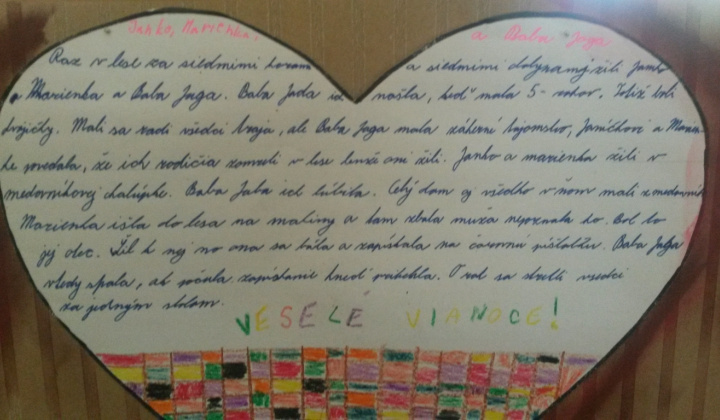 Janko, Marienka, a Baba Jaga
Raz v lese za siedmimi horami a siedmimi dolinami žili Janko
a Marienka a Baba Jaga. Baba Jada ich našla, keď mala 5 rokov. Totiž boli
dvojičky. Mali sa radi všedci traja, ale Baba Jaga mala záhadné tajomstvo, Janíčkovi a Marien-
ke povedala, že ich rodičia zomreli v lese lenže oni žili. Janko a marienka žili v
medovníkovej chalúpke. Baba Jaba ich lúbila. Celý dom aj všedko v ňom mali z medovník
Marienka išla do lesa na maliny a tam zbala muža nepoznala ho. Bol to
jej otec. Šil k nej no ona sa bála a zapískala na čarovnú píšťalku. Baba Jaga
vtedy spala, ak počula zapískanie hneď pribehla. O rok sa stretli všedci
za jedným stolom.
VESELÉ VIANOCE!